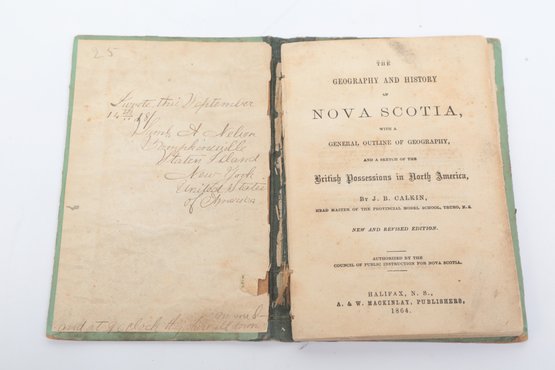 25
I wrote this September
14th 18
A Nelson
Tompkinsville
Staten Island
New York
United States
of America
and at 9 oclock the small town
THE
GEOGRAPHY AND HISTORY
OF
NOVA SCOTIA,
WITH A
GENERAL OUTLINE OF GEOGRAPHY,
AND A SKETCH OF THE
British Possessions in North America,
BY J. B. CALKIN,
HEAD MASTER OF THE PROVINCIAL MODEL SCHOOL, TRURO, N. S.
NEW AND REVISED EDITION.
AUTHORIZED BY THE
COUNCIL OF PUBLIC INSTRUCTION FOR NOVA SCOTIA.
HALIFAX, N. S.,
A. & W. MACKINLAY, PUBLISHERS,
1864.